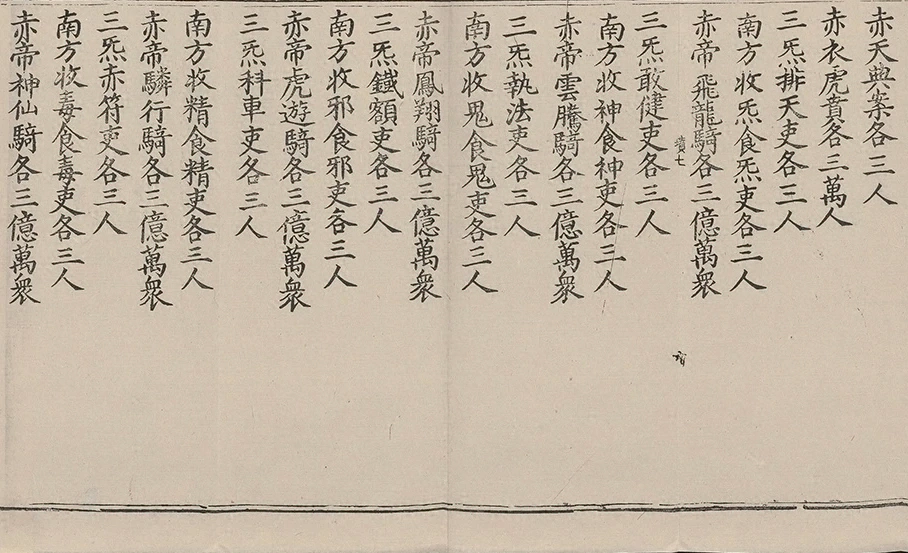 赤天典案各三人
赤衣虎賁各三萬人
三炁排天吏各三人
南方收炁食炁吏各三人
赤帝飛龍騎各三億萬衆
三炁敢健吏各三人
南方收神食神吏各三人
赤帝雲騰騎各三億萬衆
三炁執法吏各三人
南方收鬼食鬼吏各三人
赤帝鳳翔騎各三億萬衆
三炁鐵額吏各三人
南方收邪食邪吏各三人
赤帝虎遊騎各三億萬衆
三炁科車吏各三人
南方收精食精吏各三人
赤帝驎行騎各三億萬衆
三炁赤符吏各三人
南方收毒食毒吏各三人
赤帝神仙騎各三億萬衆